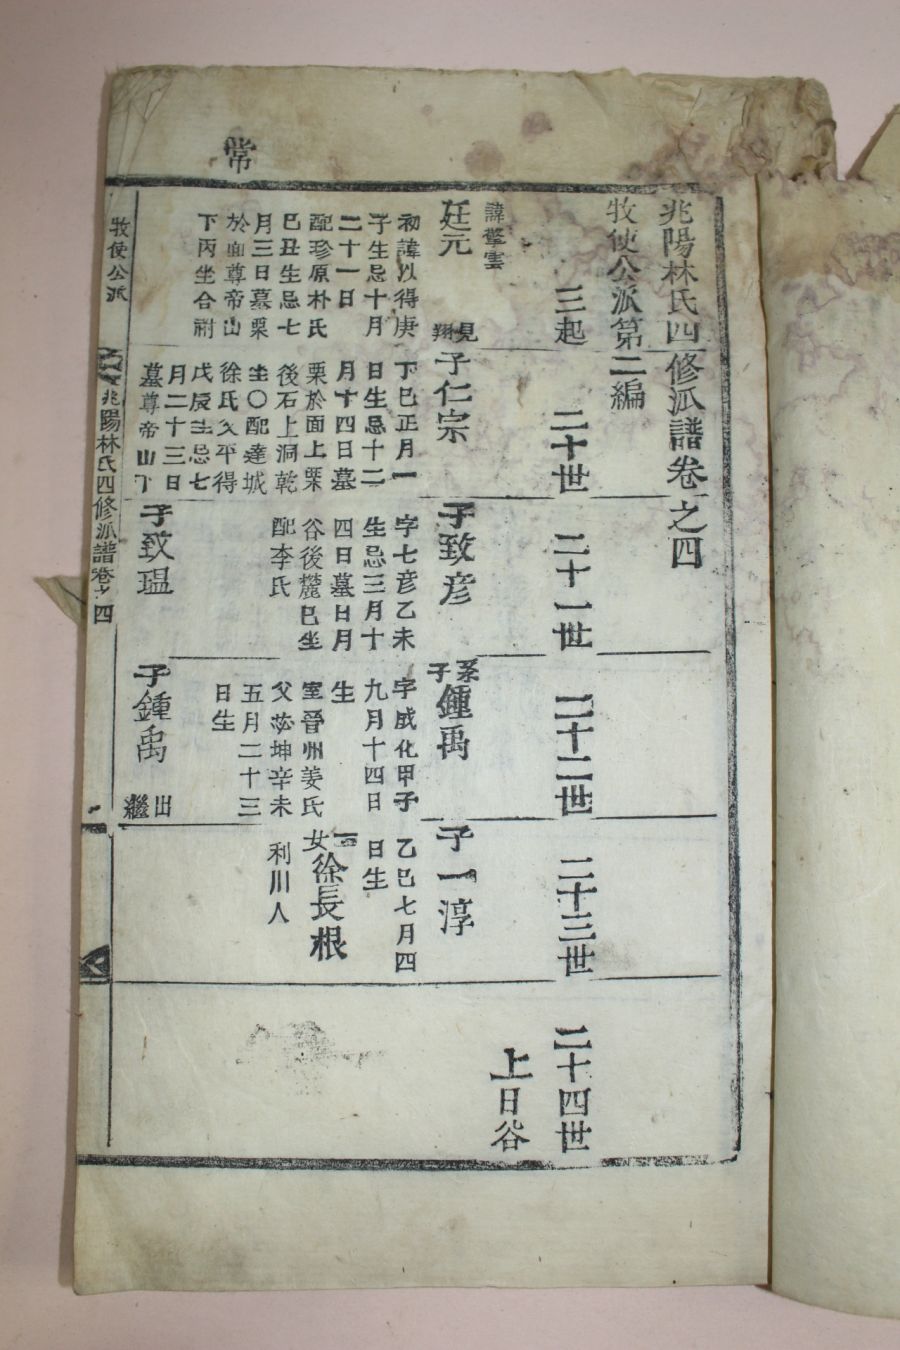 常
兆陽林氏四修派譜卷之四
牧使公派第二編
三起
二十世
二十一世
二十二世
二十三世
二十四世
上日谷
諱擎雲
廷元
見
翔
初諱以得庚
子生忌十月
二十一日
配珍原朴氏
巳丑生忌七
月三日墓栗
於面尊帝山
下丙坐合祔
子仁宗
丁巳正月一
日生忌十二
月十四日墓
栗於面上栗
後石上洞乾
坐〇配達城
徐氏父平得
戊辰生忌七
月二十三日
墓尊帝山下
子致彦
字七彦乙未
生忌三月十
四日墓日月
谷後麓巳坐
配李氏
子致瑥
系子鍾禹
字成化甲子
九月十四日
生
室晉州姜氏
父坤辛未
五月二十三
日生
子鍾禹
出
繼
子一淳
乙巳七月四
日生
女徐長根
利川人
牧使公派
兆陽林氏四修派譜卷之四
一